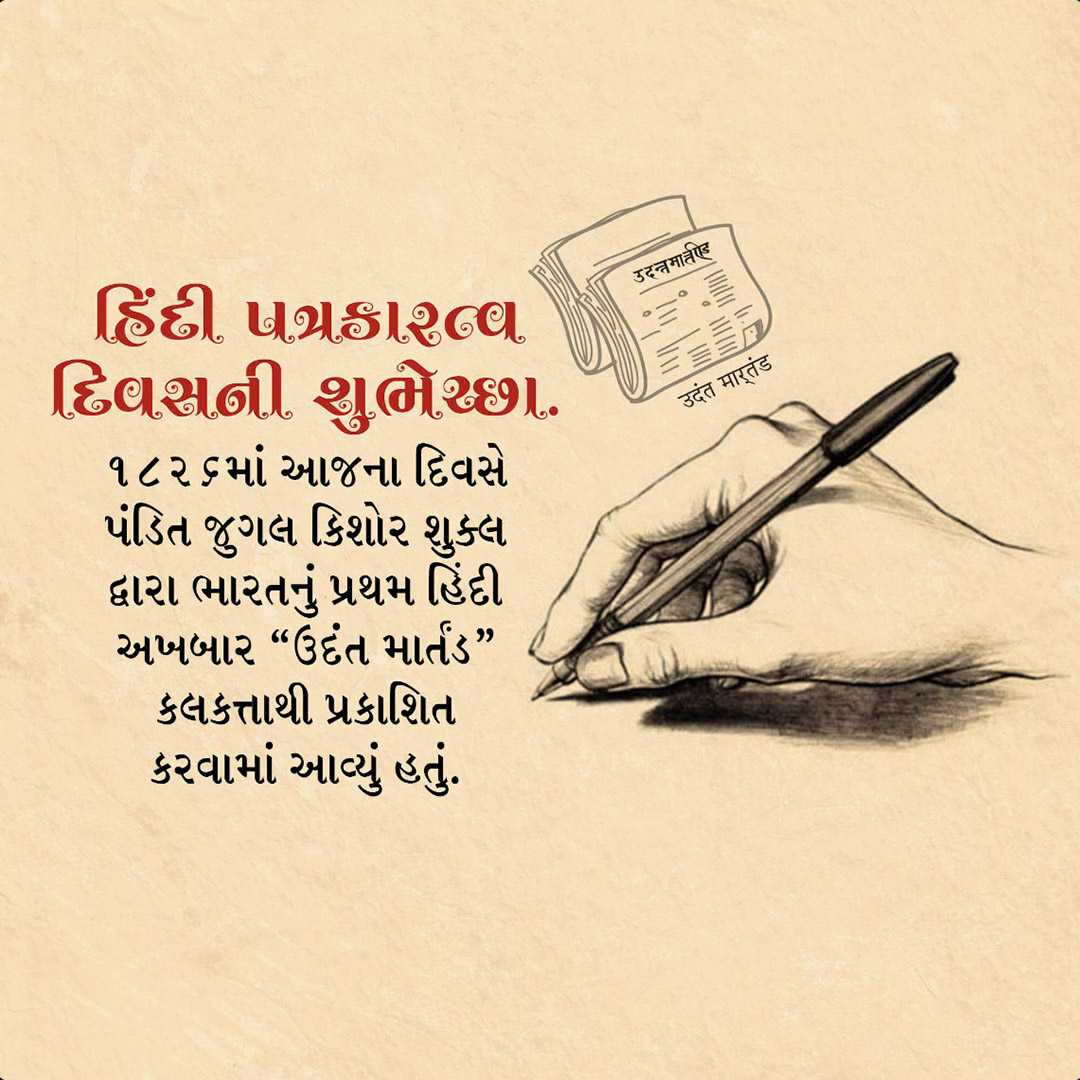 હિંદી પત્રકારત્વ
દિવસની શુભેચ્છા.
૧૮૨૬માં આજના દિવસે
પંડિત જુગલ કિશોર શુક્લ
દ્વારા ભારતનું પ્રથમ હિંદી
અખબાર “ઉદંત માર્તંડ”
કલકત્તાથી પ્રકાશિત
કરવામાં આવ્યું હતું.
उदन्तमार्त्तण्ड
उदंत मार्तंड